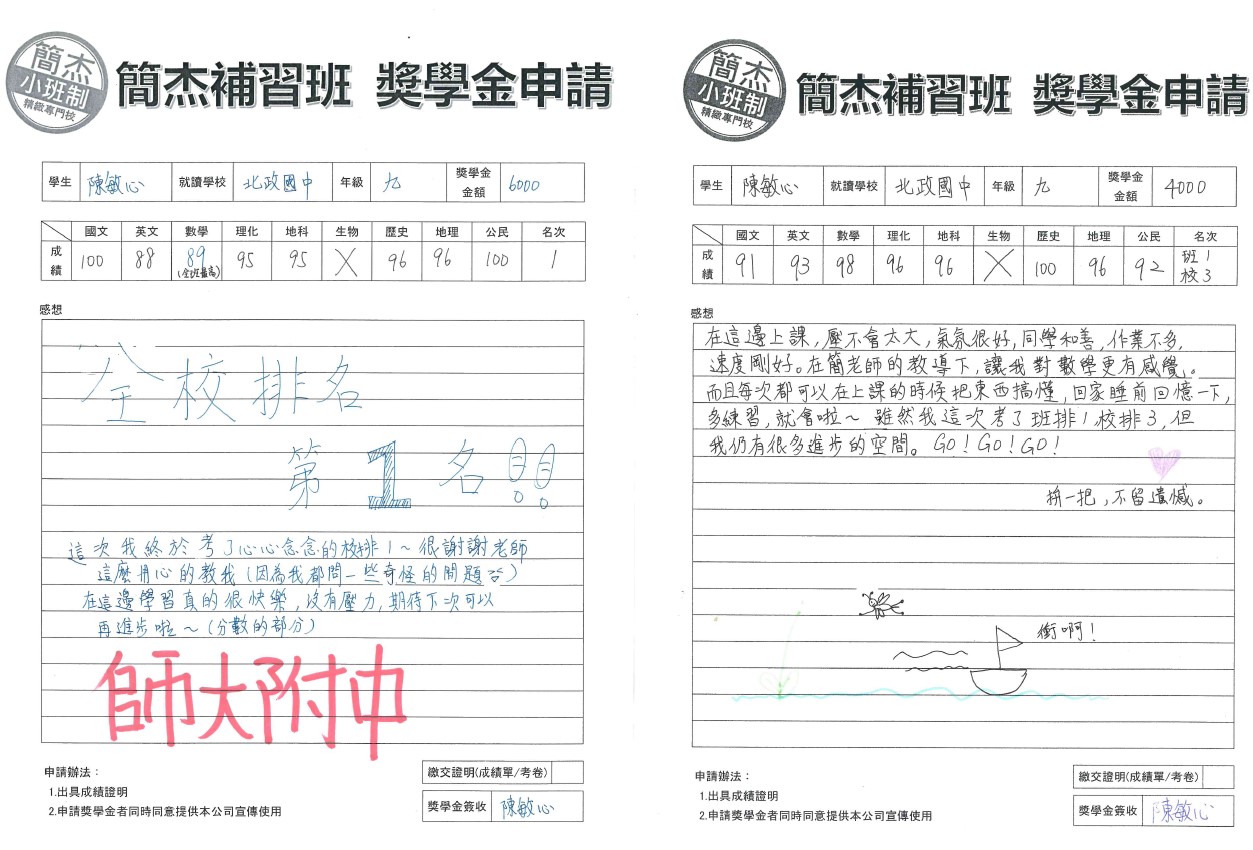 簡杰
小班制
精緻專門校
簡杰補習班 獎學金申請
學生 陳敏心 就讀學校 北政國中 年級 九 獎學金金額 6000
國文 英文 數學 理化 地科 生物 歷史 地理 公民 名次
成績 100 88 89 95 95 X 96 96 100 1
(全班最高)
感想
全校排名
第1名!!
這次我終於考了心心念念的校排1~很謝謝老師
這麼用心的教我(因為我都問一些奇怪的問題)
在這邊學習真的很快樂,沒有壓力,期待下次可以
再進步啦~(分數的部分)
師大附中
申請辦法:
1.出具成績證明
2.申請獎學金者同時同意提供本公司宣傳使用
繳交證明(成績單/考卷)
獎學金簽收 陳敏心
簡杰
小班制
精緻專門校
簡杰補習班 獎學金申請
學生 陳敏心 就讀學校 北政國中 年級 九 獎學金金額 4000
國文 英文 數學 理化 地科 生物 歷史 地理 公民 名次
成績 91 93 98 96 96 X 100 96 92 班1 校3
感想
在這邊上課,壓不會太大,氣氛很好,同學和善,作業不多,
速度剛好。在簡老師的教導下,讓我對數學更有感覺。
而且每次都可以在上課的時候把東西搞懂,回家睡前回憶一下,
多練習,就會啦~雖然我這次考了班排1,校排3,但
我仍有很多進步的空間。GO!GO!GO!
拚一把,不留遺憾。
衝啊!
申請辦法:
1.出具成績證明
2.申請獎學金者同時同意提供本公司宣傳使用
繳交證明(成績單/考卷)
獎學金簽收 陳敏心